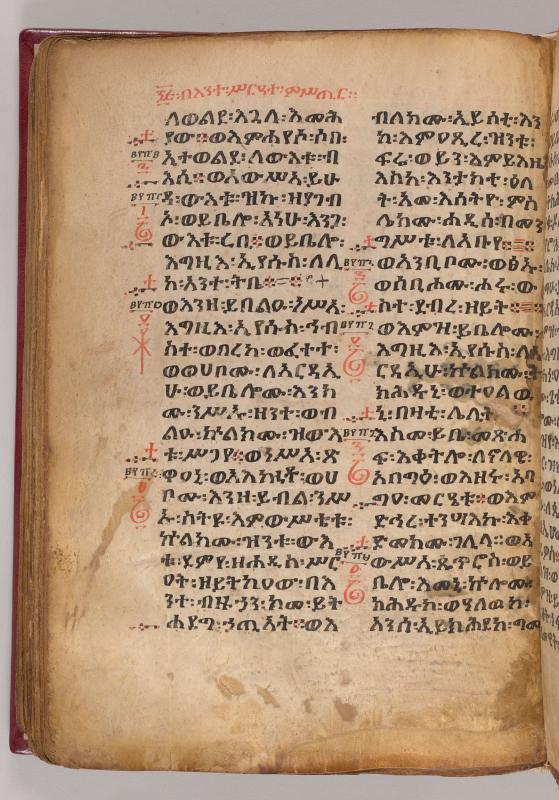 ፶፬፡በእንተ፡ሥርዓተ፡ምሥጢር፡፡
ለወልደ፡እጓለ፡እመሕ
ያው፡፡ወእምኀየሶ፡ሶበ፡
ኢተወልደ፡ለውእቱ፡ብ
እሲ፡፡ወአውሥአ፡ይሁ
ዳ፡ውእቱ፡ዝኩ፡ዘያገብ
ኦ፡ወይቤሎ፡አነሁ፡እንጋ፡
ውእቱ፡ረቢ፡፡ወይቤሎ፡
እግዚእ፡ኢየሱስ፡ለሊ
ከ፡አንተ፡ትቤ፡፡
ወእንዘ፡ይበልዑ፡ነሥአ፡
እግዚእ፡ኢየሱስ፡ኅብ
ስተ፡ወባረከ፡ወፈተተ፡
ወወሀቦሙ፡ለአርዳኢ
ሁ፡ወይቤሎሙ፡እንከ
ሙ፡ንሥኡ፡ዘንተ፡ወብ
ልዑ፡ኵልክሙ፡ዝውእ
ቱ፡ሥጋየ፡፡ወነሥአ፡ጽ
ዋዐነ፡ወአእኰተ፡ወሀ
ቦሙ፡እንዘ፡ይብል፡ንሥ
ኡ፡ስትዩ፡እምውሥቴቱ፡
ኵልክሙ፡ዝንቱ፡ውእ
ቱ፡ደምየ፡ዘሐዲስ፡ሥር
ዐት፡ዘይትከዐው፡በእ
ንተ፡ብዙኃን፡ከመ፡ይት
ሐደግ፡ኃጢአት፡፡ወእ
ብለክሙ፡ኢይሰቲ፡እን
ከ፡እምዐጺረ፡ዝንቱ፡
ፍሬ፡ወይን፡እምይእዜ
እስከ፡እንታክቲ፡ዕለ
ት፡አመ፡እሰትዮ፡ምስ
ሌክሙ፡ሐዲሰ፡በመን
ግሥቱ፡ለአቡየ፡፡
ወአንቢቦሙ፡ወፅኡ፡
ወሰቢሖሙ፡ሖሩ፡ው
ስተ፡ደብረ፡ዘይት፡፡
ወእምዝ፡ይቤሎሙ፡
እግዚእ፡ኢየሱስ፡ለአ
ርዳኢሁ፡ኵልክሙ፡ት
ክሕዱኒ፡ወተዐልዉ
ኒ፡በዛቲ፡ሌሊት
እስመ፡ይቤ፡መጽሐ
ፍ፡እቀትሎ፡ለኖላዊ፡
አባግዕ፡ወእዘሩ፡አባ
ግዐ፡መርዔቱ፡፡ወእም
ድኅረ፡ተንሣእኩ፡እቀ
ድመክሙ፡ገሊላ፡፡ወአ
ውሥአ፡ጴጥሮስ፡ወይ
ቤሎ፡እመኒ፡ኵሎሙ፡
ክሕዱከ፡ወዓለዉከ፡
አንሰ፡ኢይክሕደከ፡ግሙ